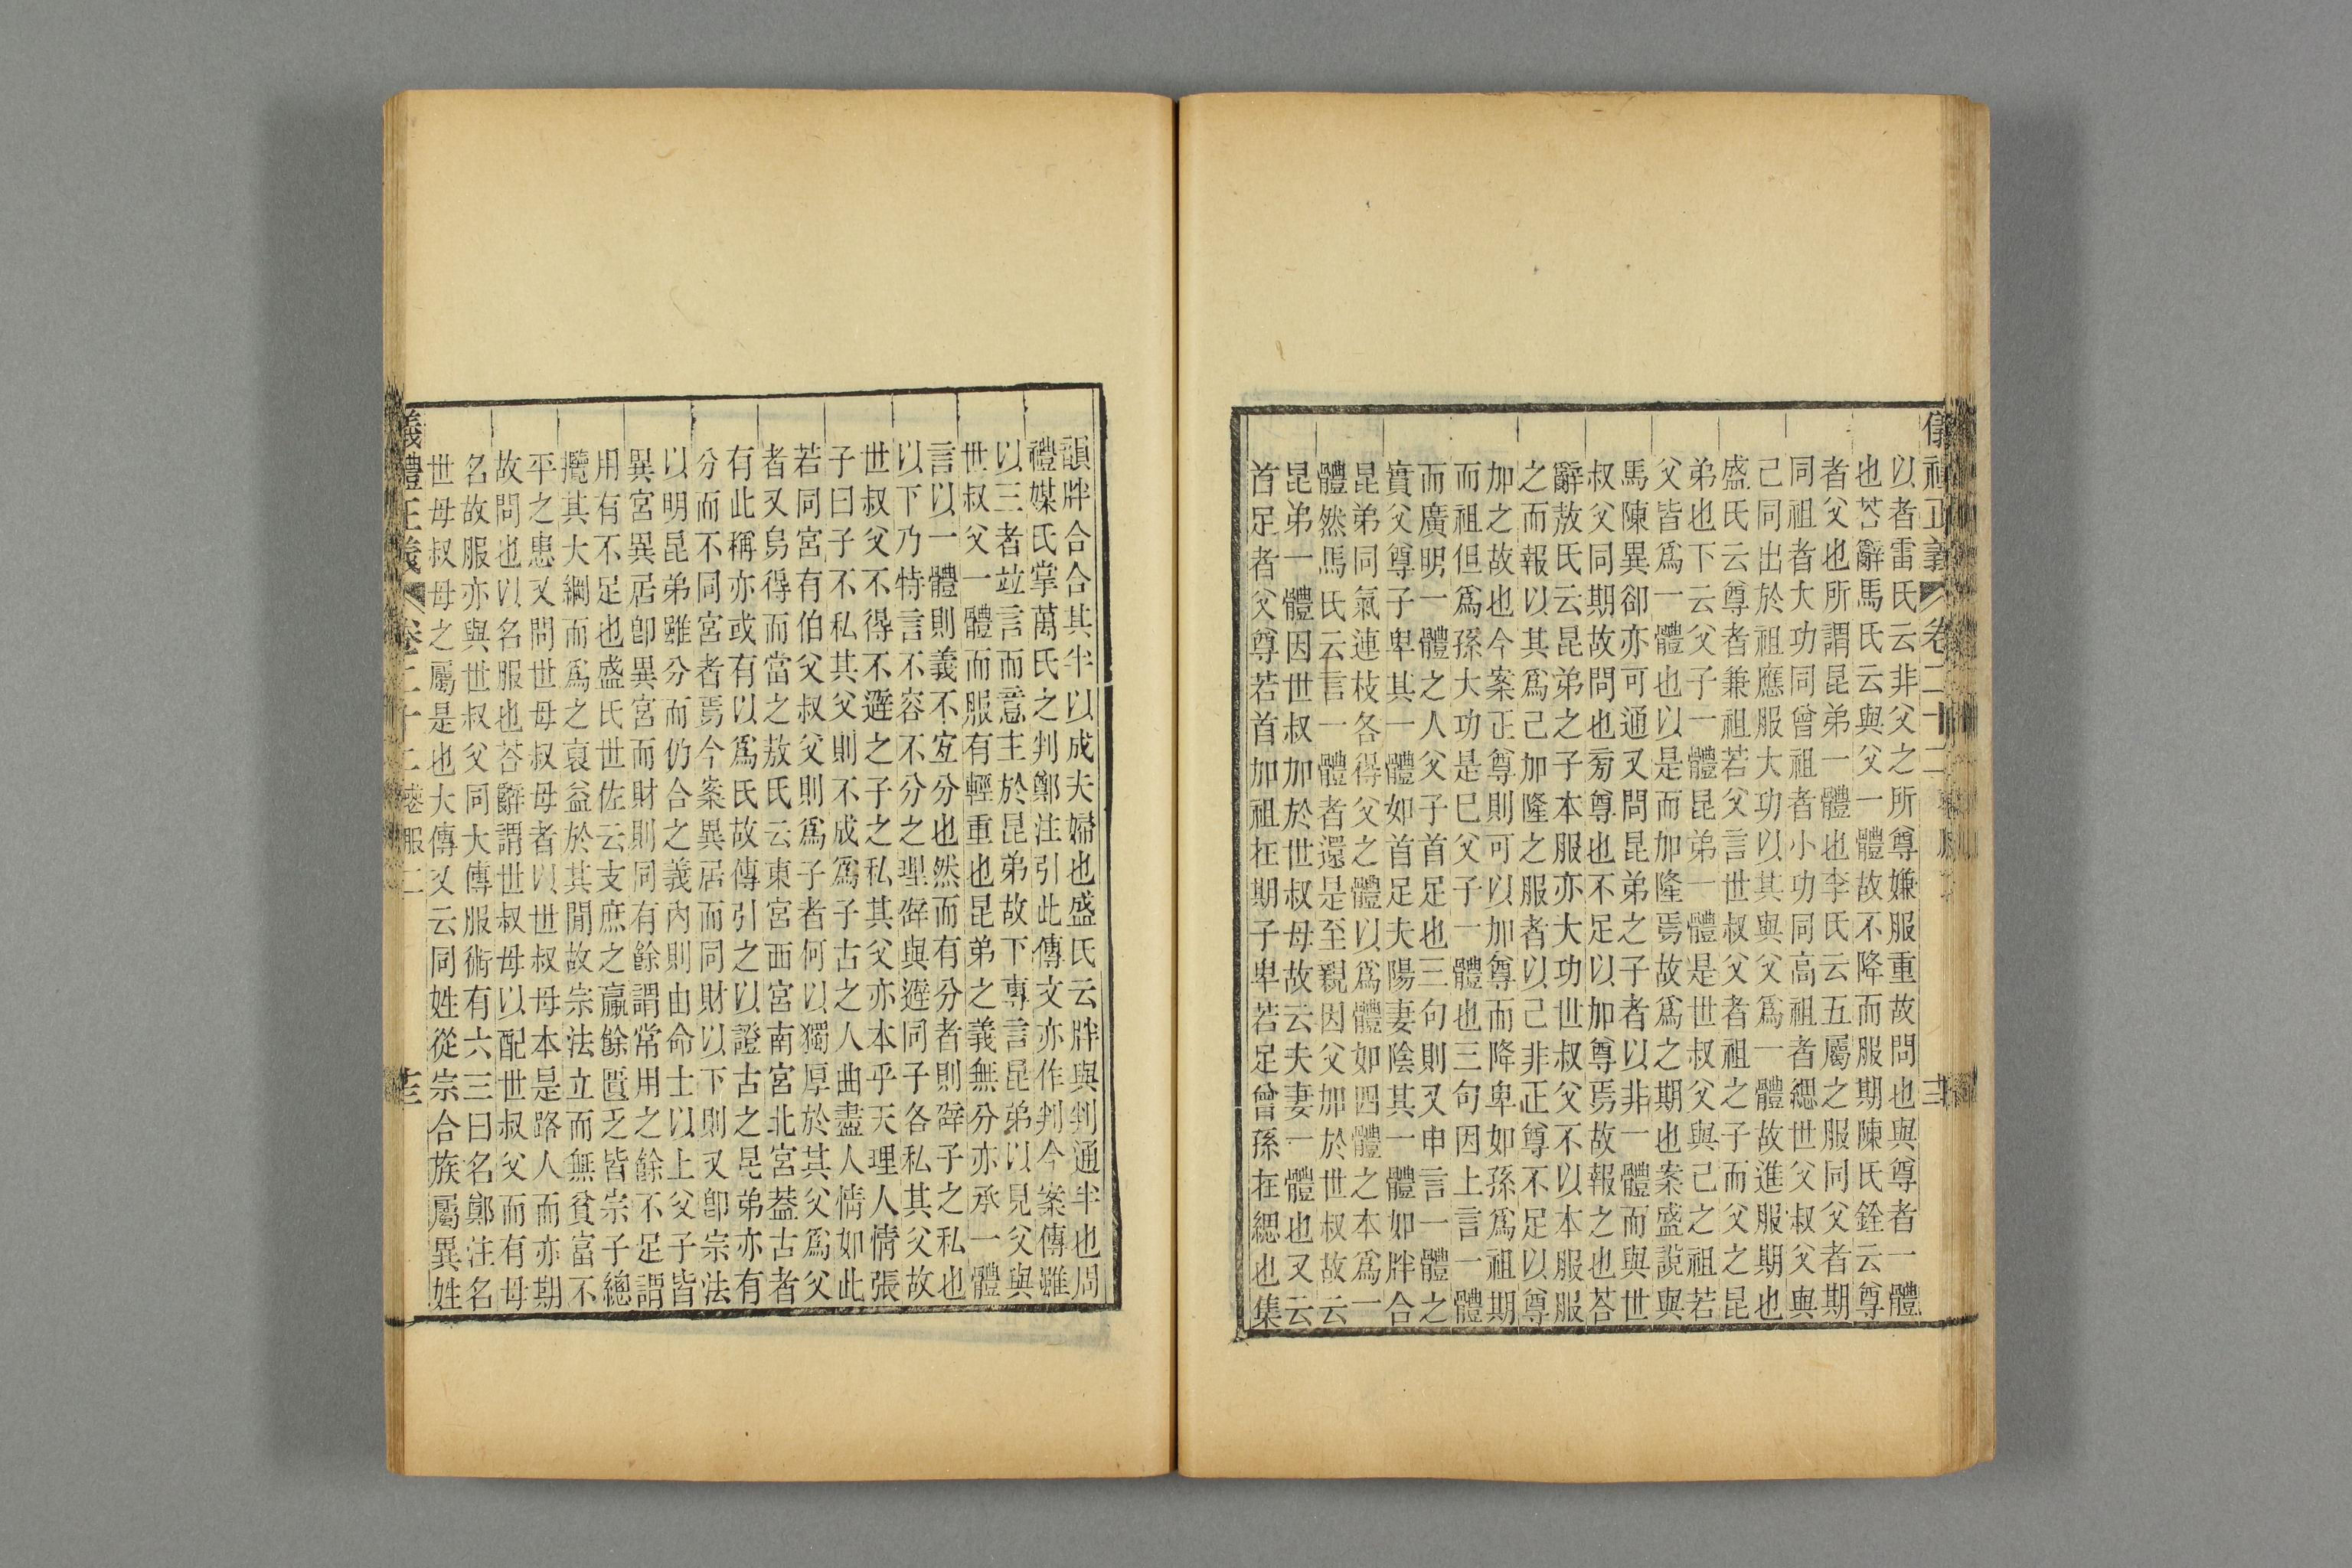 以者雷氏云非父之所尊嫌服重故問也與尊者一體
也荅辭馬氏云與父一體故不降而服期陳氏銓云尊
者父也所謂昆弟一體也李氏云五屬之服同父者期
同祖者大功同曾祖者小功同高祖者緦世父叔父與
己同出於祖應服大功以其與父爲一體故進服期也
盛氏云尊者兼祖若父言世叔父者祖之子而父之昆
弟也下云父子一體昆弟一體是世叔父與己之祖若
父皆爲一體也以是而加隆焉故爲之期也案盛說與
馬陳異卻亦可通又問昆弟之子者以非一體而與世
叔父同期故問也旁尊也不足以加尊焉故報之也荅
辭敖氏云昆弟之子本服亦大功世叔父不以本服服
之而報以其爲己加隆之服者以己非正尊不足以尊
加之故也今案正尊則可以加尊而降卑如孫爲祖期
而祖但爲孫大功是巳父子一體也三句因上言一體
而廣明一體之人父子首足也三句則又申言一體之
實父尊子卑其一體如首足夫陽妻陰其一體如牉合
昆弟同氣連枝各得父之體以爲體如四體之本爲一
體然馬氏云言一體者還是至親因父加於世叔故云
昆弟一體因世叔加於世叔母故云夫妻一體也又云
首足者父尊若首加祖在期子卑若足曾孫在緦也集
韻牉合合其半以成夫婦也盛氏云牉與判通半也周
禮媒氏掌萬氏之判鄭注引此傳文亦作判今案傳雖
以三者竝言而意主於昆弟故下專言昆弟以見父與
世叔父一體而服有輕重也昆弟之義無分亦承一體
言以一體則義不宐分也然而有分者則辟子之私也
以下乃特言不容不分之理辟與避同子各私其父故
世叔父不得不避之子之私其父亦本乎天理人情張
子曰子不私其父則不成爲子古之人曲盡人情如此
若同宮有伯父叔父則爲子者何以獨厚於其父爲父
者又烏得而當之敖氏云東宮西宮南宮北宮葢古者
有此稱亦或有以爲氏故傳引之以證古之昆弟亦有
分而不同宮者焉今案異居而同財以下則又卽宗法
以明昆弟雖分而仍合之義內則由命士以上父子皆
異宮異居卽異宮而財則同有餘謂常用之餘不足謂
用有不足也盛氏世佐云支庶之贏餘匱乏皆宗子總
攬其大綱而爲之裒益於其閒故宗法立而無貧富不
平之患又問世母叔母者以世叔母本是路人而亦期
故問也以名服也荅辭謂世叔母以配世叔父而有母
名故服亦與世叔父同大傳服術有六三曰名鄭注名
世母叔母之屬是也大傳又云同姓從宗合族屬異姓